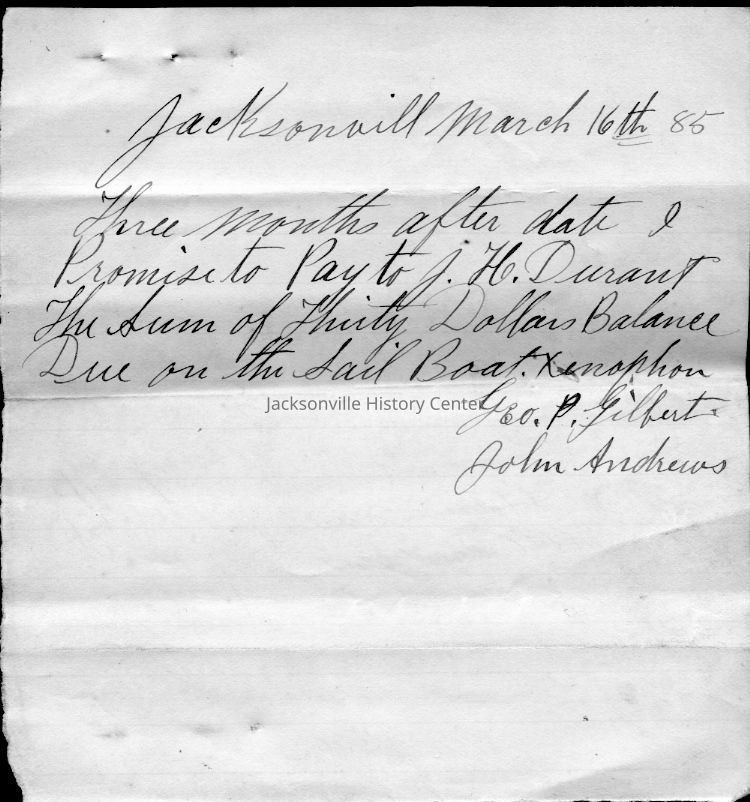 Jacksonvill March 16th 85
Three months after date I
Promise to Pay to J. H. Durant
The Sum of Thirty Dollars Balance
Due on the Sail Boat. Xenophon
Jacksonville History Center
Geo. P. Gilbert
John Andrews